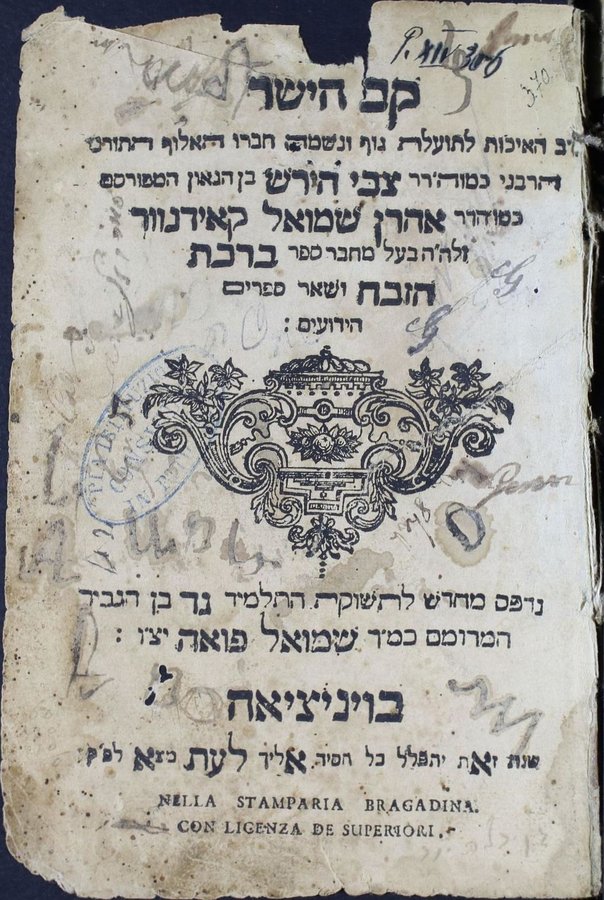 P. XIII 306
370.
קב הישר
רב האיכות לתועלת גוף ונשמה: חברו האלוף התורני
והרבני כמוה׳רר צבי הירש בן הגאון המפורסם
כמוהרר אהרן שמואל קאידנוור
זלה״ה בעל מחבר ספר ברכת
הזבח ושאר ספרים
הידועים :
נדפס מחדש לתשוקת התלמיד גד בן הגביר
המרומם כמ״ר שמואל פואה יצ״ו :
בויניציאה
שנת זאת יתפלל כל חסיד אליך לעת מצא לפ״ק
NELLA STAMPARIA BRAGADINA.
CON LICENZA DE SUPERIORI.